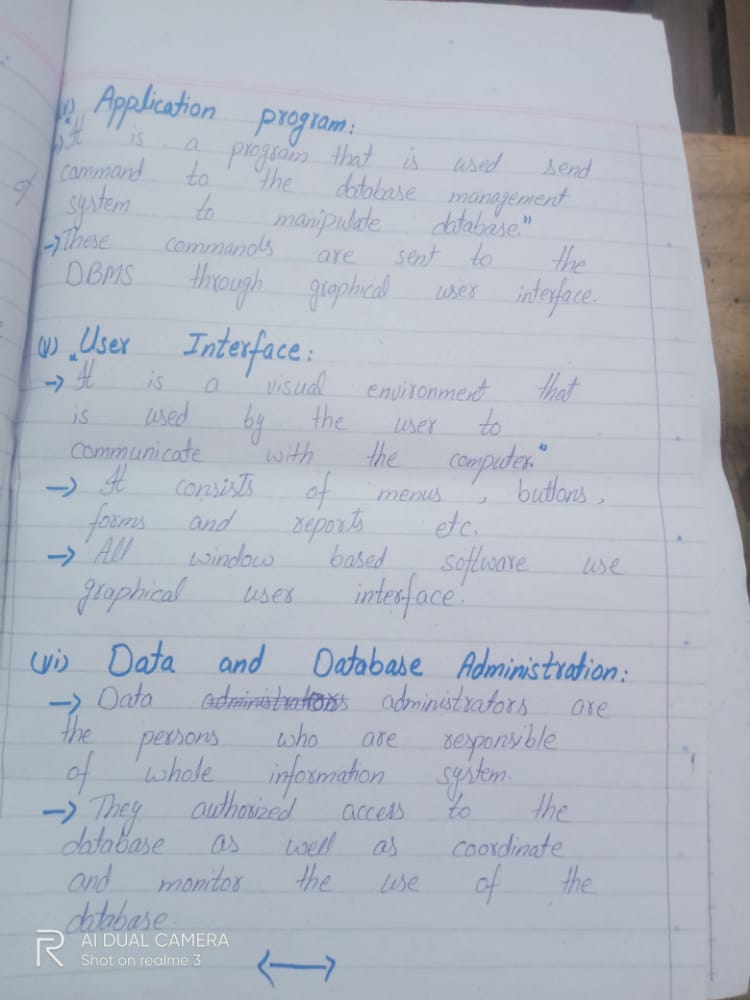 Application program:
"It is a program that is used send
command to the database management
system to manipulate database."
→ These commands are sent to the
DBMS through graphical user interface.
(v) User Interface:
→ "It is a visual environment that
is used by the user to
communicate with the computer."
→ It consists of menus, buttons,
forms and reports etc.
→ All window based software use
graphical user interface.
(vi) Data and Database Administration:
→ Data administrators administrators are
the persons who are responsible
of whole information system.
→ They authorized access to the
database as well as coordinate
and monitor the use of the
database.
AI DUAL CAMERA
Shot on realme 3